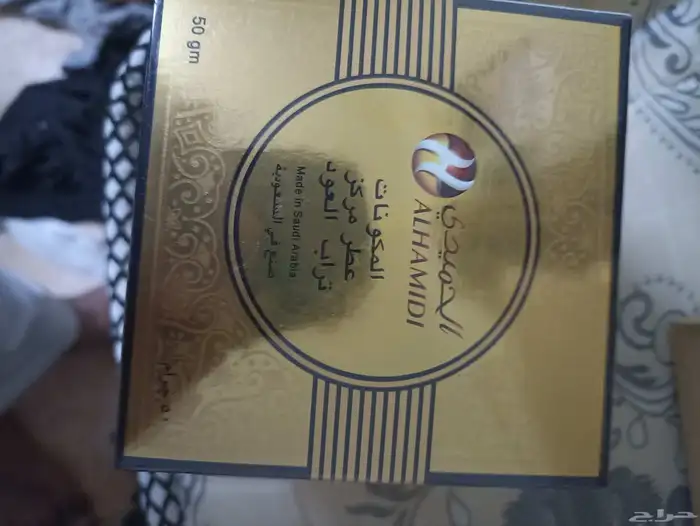 الحميدي
ALHAMIDI
المكونات
عطر مركز
تراب العود
Made in Saudi Arabia
صنع في السعودية
50 gm
٥٠ جرام
حراج